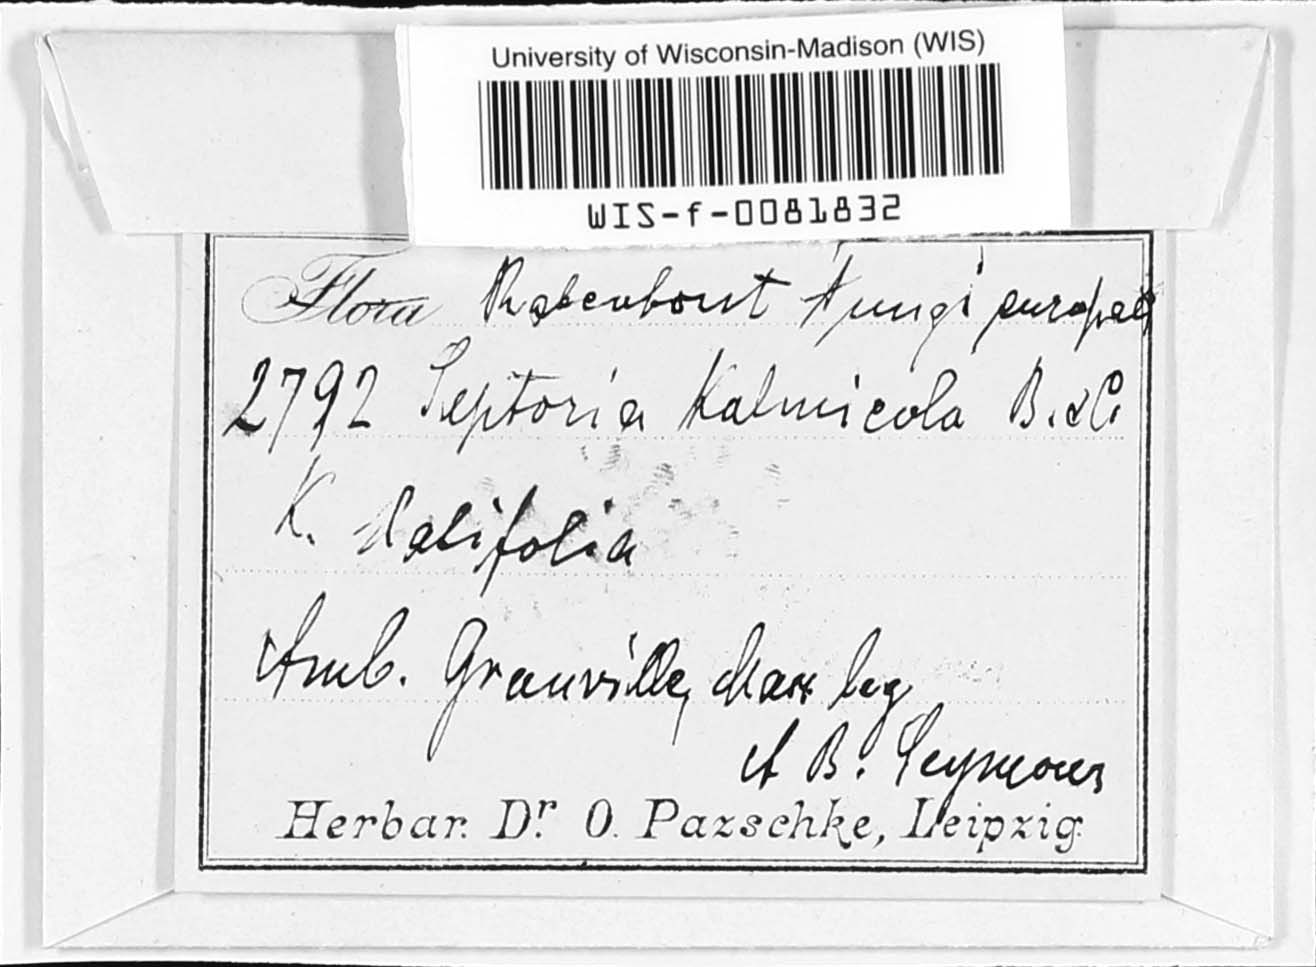 University of Wisconsin-Madison (WIS)
WIS-f-0081832
Flora Rabenhorst Fungi europaei
2792 Septoria Kalmicola B. & C.
K. latifolia
Amb. Granville, Mass leg
A B. Seymour
Herbar. Dr. O. Pazschke, Leipzig.